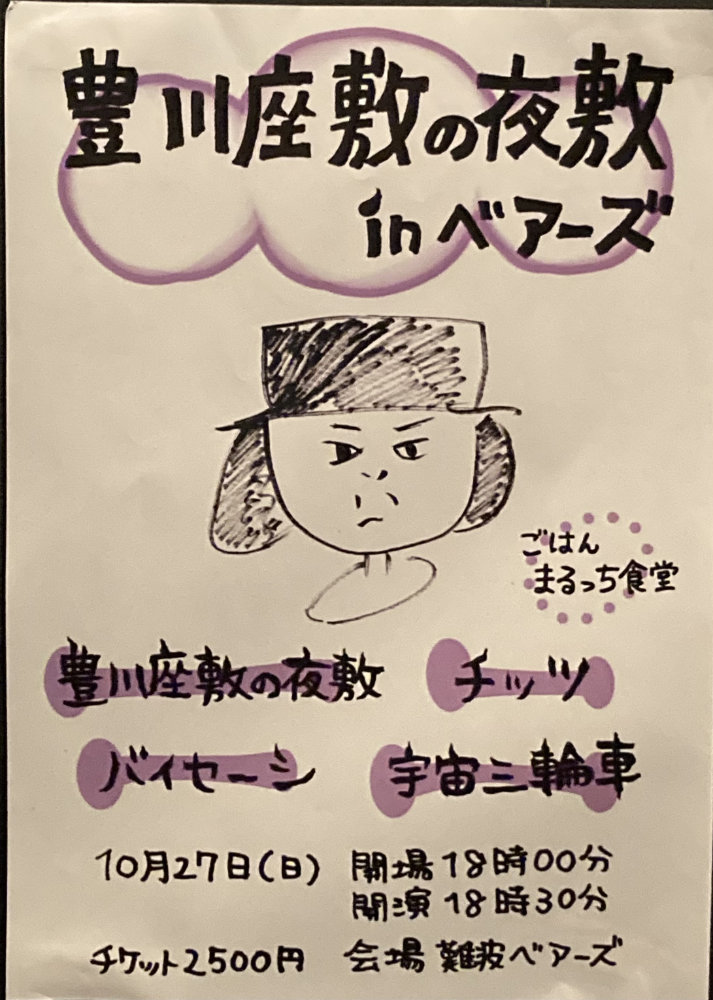 豊川座敷の夜敷
inベアーズ
ごはん
まるっち食堂
豊川座敷の夜敷
チッツ
バイセーシ
宇宙三輪車
10月27日(日) 開場18時00分
開演18時30分
チケット2500円 会場 難波ベアーズ